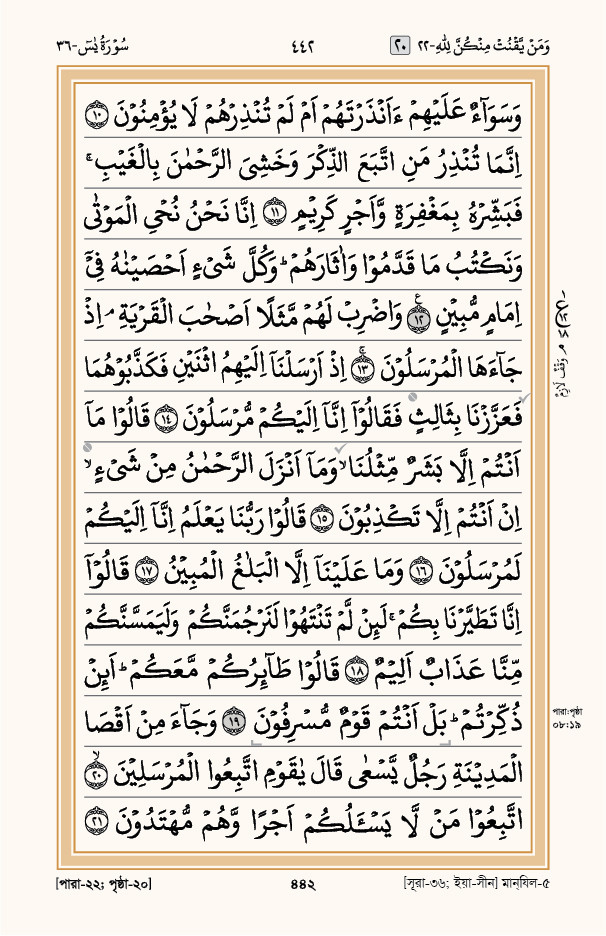 وَمَنۡ يَّقۡنُتۡ مِنۡكُنَّ لِلّٰهِ-٢٢ ٢٠ ٤٤٢ سُوۡرَةُ يٰسٓ-٣٦
وَسَوَآءٌ عَلَيۡهِمۡ ءَاَنۡذَرۡتَهُمۡ اَمۡ لَمۡ تُنۡذِرۡهُمۡ لَا يُؤۡمِنُوۡنَ ۝١٠
اِنَّمَا تُنۡذِرُ مَنِ اتَّبَعَ الذِّكۡرَ وَخَشِىَ الرَّحۡمٰنَ بِالۡغَيۡبِۚ
فَبَشِّرۡهُ بِمَغۡفِرَةٍ وَّاَجۡرٍ كَرِيۡمٍ ۝١١ اِنَّا نَحۡنُ نُحۡىِ الۡمَوۡتٰى
وَنَكۡتُبُ مَا قَدَّمُوۡا وَاٰثَارَهُمۡؕ وَكُلَّ شَىۡءٍ اَحۡصَيۡنٰهُ فِىۡۤ
اِمَامٍ مُّبِيۡنٍ ۝١٢ۧ وَاضۡرِبۡ لَهُمۡ مَّثَلًا اَصۡحٰبَ الۡقَرۡيَةِۘ اِذۡ
جَآءَهَا الۡمُرۡسَلُوۡنَ ۝١٣ۚ اِذۡ اَرۡسَلۡنَاۤ اِلَيۡهِمُ اثۡنَيۡنِ فَكَذَّبُوۡهُمَا
فَعَزَّزۡنَا بِثَالِثٍ فَقَالُوۡۤا اِنَّاۤ اِلَيۡكُمۡ مُّرۡسَلُوۡنَ ۝١٤ قَالُوۡا مَاۤ
اَنۡتُمۡ اِلَّا بَشَرٌ مِّثۡلُنَاۙ وَمَاۤ اَنۡزَلَ الرَّحۡمٰنُ مِنۡ شَىۡءٍۙ
اِنۡ اَنۡتُمۡ اِلَّا تَكۡذِبُوۡنَ ۝١٥ قَالُوۡا رَبُّنَا يَعۡلَمُ اِنَّاۤ اِلَيۡكُمۡ
لَمُرۡسَلُوۡنَ ۝١٦ وَمَا عَلَيۡنَاۤ اِلَّا الۡبَلٰغُ الۡمُبِيۡنُ ۝١٧ قَالُوۡۤا
اِنَّا تَطَيَّرۡنَا بِكُمۡۚ لَئِنۡ لَّمۡ تَنۡتَهُوۡا لَنَرۡجُمَنَّكُمۡ وَلَيَمَسَّنَّكُمۡ
مِّنَّا عَذَابٌ اَلِيۡمٌ ۝١٨ قَالُوۡا طَآئِرُكُمۡ مَّعَكُمۡؕ اَئِنۡ
ذُكِّرۡتُمۡؕ بَلۡ اَنۡتُمۡ قَوۡمٌ مُّسۡرِفُوۡنَ ۝١٩ وَجَآءَ مِنۡ اَقۡصَا
الۡمَدِيۡنَةِ رَجُلٌ يَّسۡعٰى قَالَ يٰقَوۡمِ اتَّبِعُوا الۡمُرۡسَلِيۡنَ ۝٢٠ۙ
اتَّبِعُوۡا مَنۡ لَّا يَسۡـَٔلُكُمۡ اَجۡرًا وَّهُمۡ مُّهۡتَدُوۡنَ ۝٢١
وَقۡف لَازِم
পারা:পৃষ্ঠা
০৮:১৯
[পারা-২২; পৃষ্ঠা-২০] ৪৪২ [সূরা-৩৬; ইয়া-সীন] মান্‌যিল-৫